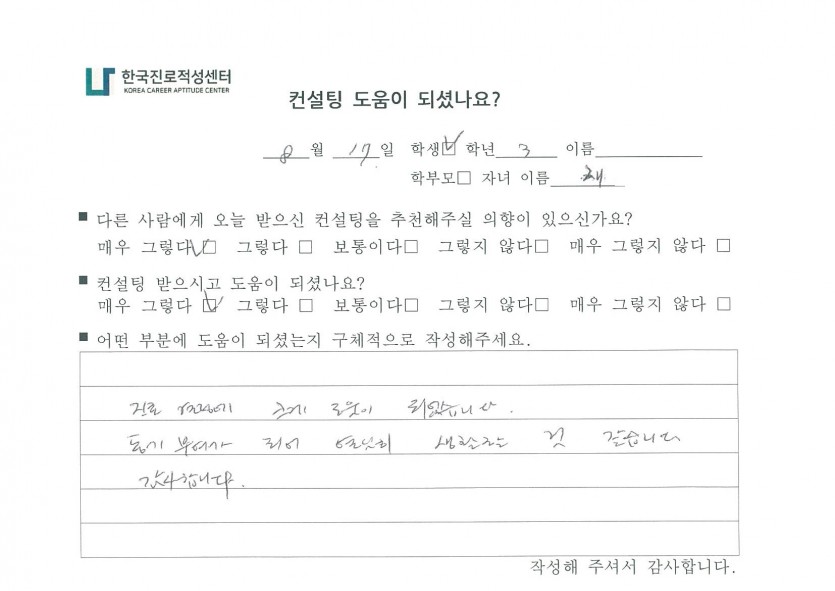 한국진로적성센터
KOREA CAREER APTITUDE CENTER
컨설팅 도움이 되셨나요?
8월 17일 학생☑ 학년 3 이름
학부모□ 자녀 이름
■ 다른 사람에게 오늘 받으신 컨설팅을 추천해주실 의향이 있으신가요?
매우 그렇다☑ 그렇다 □ 보통이다□ 그렇지 않다□ 매우 그렇지 않다 □
■ 컨설팅 받으시고 도움이 되셨나요?
매우 그렇다 ☑ 그렇다 □ 보통이다□ 그렇지 않다□ 매우 그렇지 않다 □
■ 어떤 부분에 도움이 되셨는지 구체적으로 작성해주세요.
진로 결정에 크게 도움이 되었습니다.
동기 부여가 되어 열심히 생활하는 것 같습니다
감사합니다.
작성해 주셔서 감사합니다.